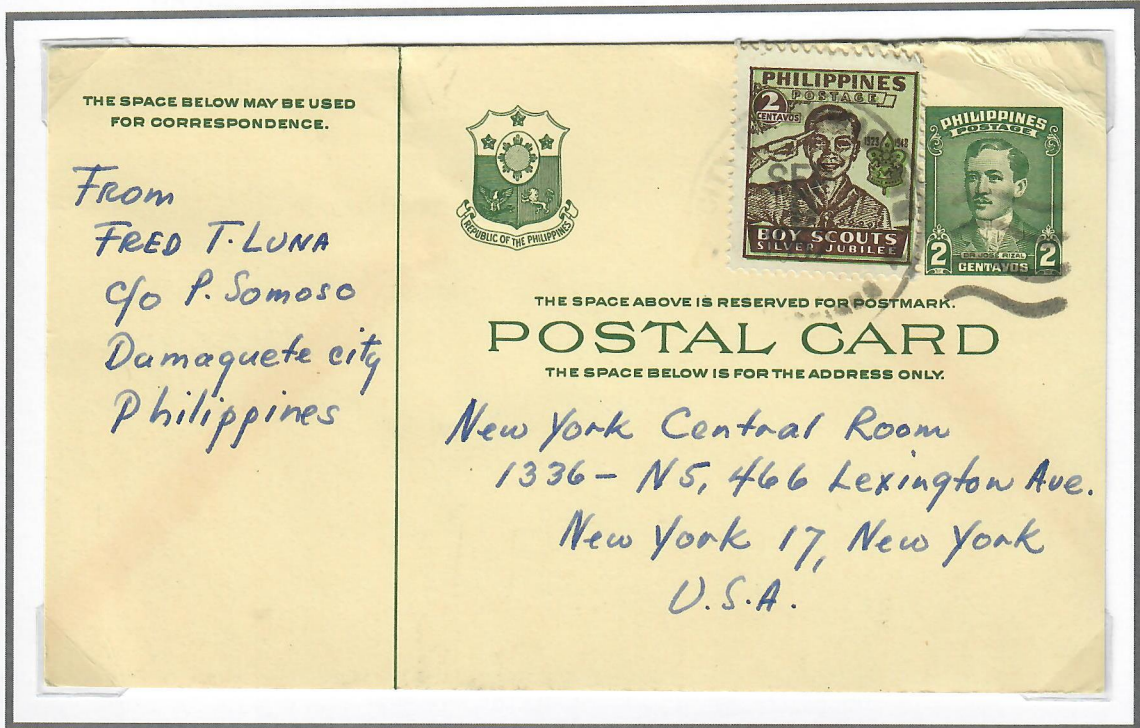 THE SPACE BELOW MAY BE USED
FOR CORRESPONDENCE.
From
FRED T. LUNA
c/o P. Somoso
Dumaguete city
Philippines
REPUBLIC OF THE PHILIPPINES
PHILIPPINES
POSTAGE
2
CENTAVOS
1923 1948
BOY SCOUTS
SILVER JUBILEE
PHILIPPINES
POSTAGE
DR. JOSE RIZAL
2 CENTAVOS 2
THE SPACE ABOVE IS RESERVED FOR POSTMARK.
POSTAL CARD
THE SPACE BELOW IS FOR THE ADDRESS ONLY.
New York Central Room
1336 - N5, 466 Lexington Ave.
New York 17, New York
U.S.A.